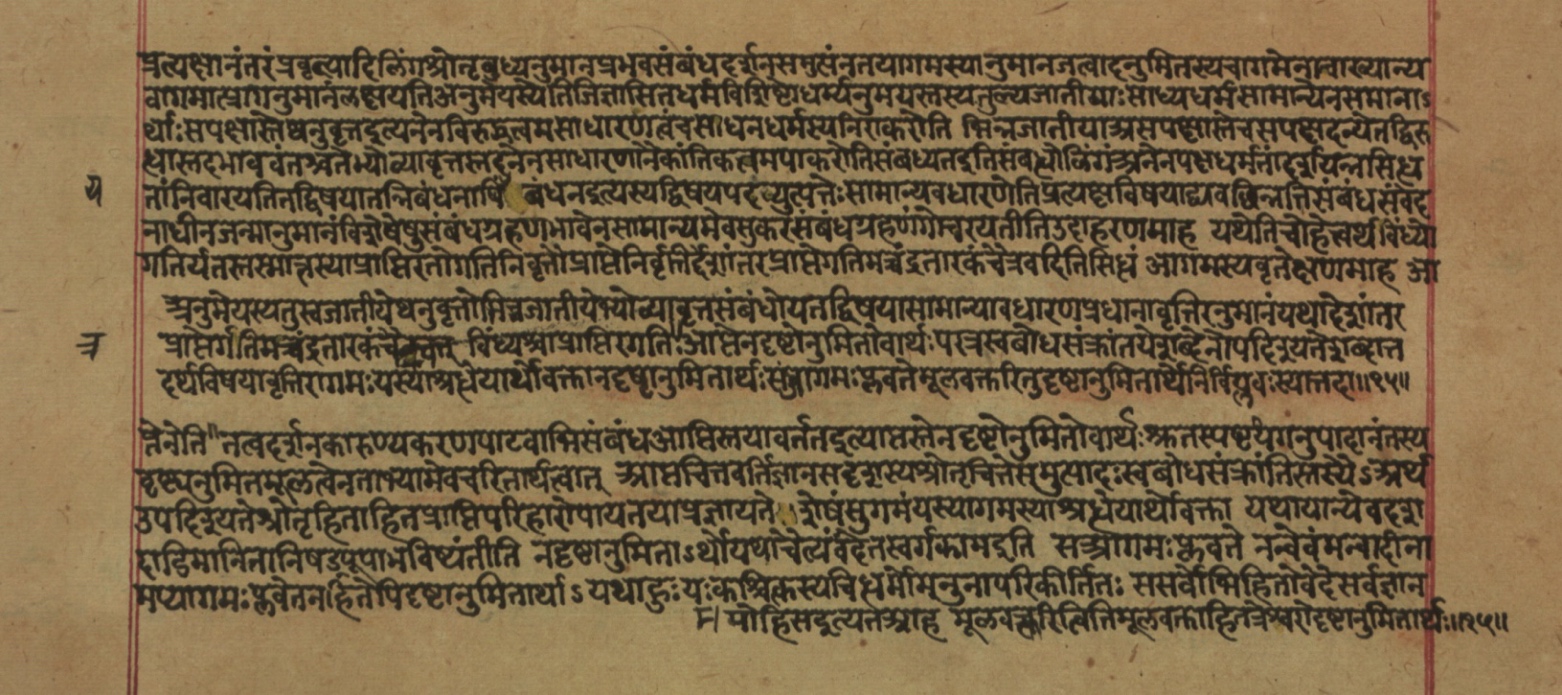 प्रत्यक्षानंतरं प्रवृत्त्यादिलिंगश्रोतृबुध्यनुमानप्रभवसंबंधदर्शनसमुत्संनतयागमस्यानुमानजत्वादनुमितस्यचागमेनान्वाख्यान्य
वागमात्प्रागनुमानंलक्षयतिअनुमेयस्येतिजिज्ञासितधर्मविशिष्टोधर्म्यनुमेयस्तस्यतुल्यजातीयाःसाध्यधर्मसामान्येनसमानाऽ
र्थाःसपक्षास्तेष्वनुवृत्तइत्यनेनविरुद्धत्वमसाधारणत्वंचसाधनधर्मस्यनिराकरोति भिन्नजातीयाअसपक्षास्तेचसपक्षादन्येतद्विरु
द्धास्तदभाववंतश्चतेभ्योव्यावृत्तस्तदनेनसाधारणानैकांतिकत्वमपाकरोतिसंबध्यतइतिसंबंधोलिंगंअनेनपक्षधर्मतांदर्शयन्नसिद्ध
तांनिवारयतितद्विषयातन्निबंधनाषिञ् बंधनइत्यस्यद्विषयपदंव्युत्पत्तेःसामान्यवधारणेतिप्रत्यक्षविषयाद्यवच्छिनत्तिसंबंधसंवेद
य
नाधीनजन्मानुमानंविशेषेषुसंबंधग्रहणाभावेनसामान्यमेवसुकरसंबंधग्रहणंगोचरयतीतिउदाहरणमाह यथेतिचोहेत्वर्थेविंध्यो
गतिर्यतस्तस्मात्तस्याप्राप्तिरतोगतिनिवृत्तौप्राप्तेर्निवृत्तिर्देशांतरप्राप्तेर्गतिमच्चंद्रतारकंचैत्रवदितिसिद्धं आगमस्यवृत्तेर्लक्षणमाह आ
अनुमेयस्यतुल्यजातीयेष्वनुवृत्तोभिन्नजातीयेभ्योव्यावृत्तसंबंधोयतद्विषयासामान्यावधारणप्रधानावृत्तिरनुमानंयथादेशांतर
प्राप्तेर्गतिमच्चंद्रतारकंचै विंध्यश्चाप्राप्तिरगतिः आप्तेनदृष्टोनुमितोवार्थःपरत्रस्वबोधसंक्रांतयेशब्देनोपदिश्यतेशब्दात्त
त्र
दर्थविषयावृत्तिरागमःयस्याअश्रद्धेयार्थोवक्तानदृष्टानुमितार्थःसआगमःप्लवतेमूलवक्तरितुदृष्टानुमितार्थेनिर्विप्लवःस्यात्तदा॥१५॥
प्तेनेति"तत्वदर्शनकारुण्यकरणपाटवाभिसंबंधआप्तिस्तयावर्त्ततइत्याप्तस्तेनदृष्टोनुमितोवार्थःश्रुतस्यपृथगनुपादानंतस्य
दृष्ट्यनुमितमूलत्वेनताभ्यामेवचरितार्थत्वात् आप्तचित्तवर्तिज्ञानसदृशस्यश्रोतृचित्तेसमुत्पादःस्वबोधसंक्रांतिस्तस्यैऽअर्थ
उपदिश्यतेश्रोतृहिताहितप्राप्तिपरिहारोपायतयाप्रज्ञायते शेषंसुगमंयस्यागमस्याअश्रद्धेयार्थोवक्ता यथायान्येवदश
दाडिमानितानिषडपूपाभविष्यंतीति नदृष्टानुमिताऽर्थोयथाचैत्यंवंदेतस्वर्गकामइति सआगमःप्लवते नन्वेवंमन्वादीना
मप्यागमःप्लवेतनहितेपिदृष्टानुमितार्थाऽ यथाहुःयःकश्चित्कस्यचिद्धर्मोमनुनापरिकीर्तितः ससर्वोभिहितोवेदेसर्वज्ञान
मयोहिसइत्यतआह मूलवक्तरित्वितिमूलवक्ताहितत्रेश्वरोदृष्टानुमितार्थः॥१५॥